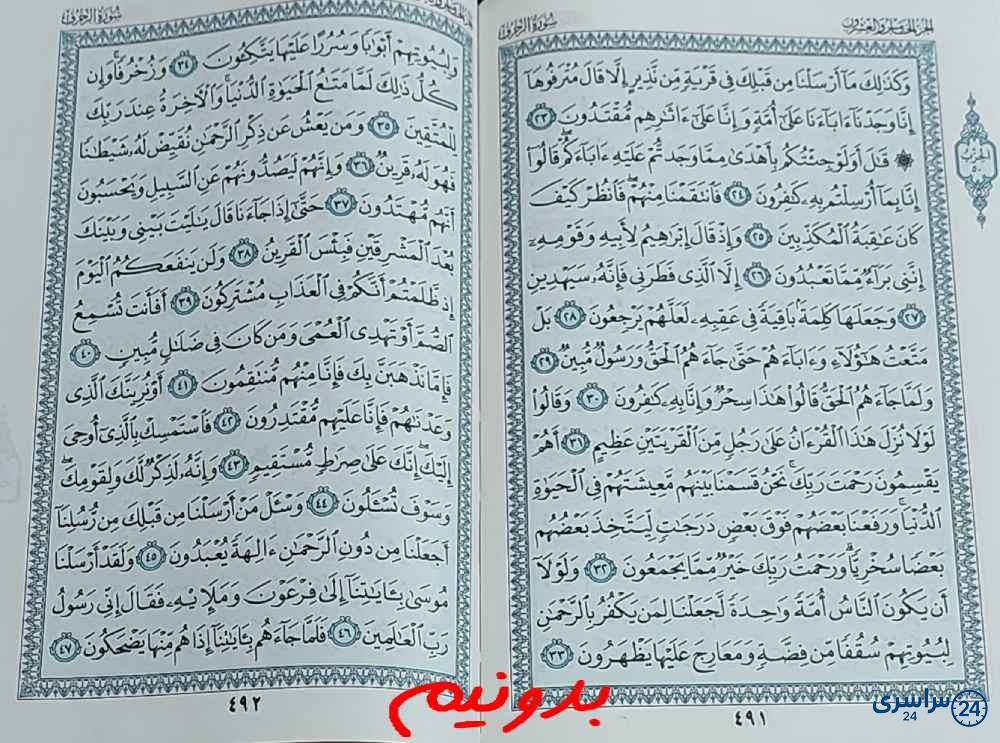 الجزء الخامس والعشرون
سورة الزخرف
وَكَذَٰلِكَ مَآ أَرْسَلْنَا مِن قَبْلِكَ فِى قَرْيَةٍ مِّن نَّذِيرٍ إِلَّا قَالَ مُتْرَفُوهَآ
إِنَّا وَجَدْنَآ ءَابَآءَنَا عَلَىٰٓ أُمَّةٍ وَإِنَّا عَلَىٰٓ ءَاثَٰرِهِم مُّقْتَدُونَ ٢٣
۞ قَٰلَ أَوَلَوْ جِئْتُكُم بِأَهْدَىٰ مِمَّا وَجَدتُّمْ عَلَيْهِ ءَابَآءَكُمْ ۖ قَالُوٓا۟
إِنَّا بِمَآ أُرْسِلْتُم بِهِۦ كَٰفِرُونَ ٢٤ فَٱنتَقَمْنَا مِنْهُمْ ۖ فَٱنظُرْ كَيْفَ
كَانَ عَٰقِبَةُ ٱلْمُكَذِّبِينَ ٢٥ وَإِذْ قَالَ إِبْرَٰهِيمُ لِأَبِيهِ وَقَوْمِهِۦٓ
إِنَّنِى بَرَآءٌ مِّمَّا تَعْبُدُونَ ٢٦ إِلَّا ٱلَّذِى فَطَرَنِى فَإِنَّهُۥ سَيَهْدِينِ
٢٧ وَجَعَلَهَا كَلِمَةًۢ بَاقِيَةً فِى عَقِبِهِۦ لَعَلَّهُمْ يَرْجِعُونَ ٢٨ بَلْ
مَتَّعْتُ هَٰٓؤُلَآءِ وَءَابَآءَهُمْ حَتَّىٰ جَآءَهُمُ ٱلْحَقُّ وَرَسُولٌ مُّبِينٌ ٢٩
وَلَمَّا جَآءَهُمُ ٱلْحَقُّ قَالُوا۟ هَٰذَا سِحْرٌ وَإِنَّا بِهِۦ كَٰفِرُونَ ٣٠ وَقَالُوا۟
لَوْلَا نُزِّلَ هَٰذَا ٱلْقُرْءَانُ عَلَىٰ رَجُلٍ مِّنَ ٱلْقَرْيَتَيْنِ عَظِيمٍ ٣١ أَهُمْ
يَقْسِمُونَ رَحْمَتَ رَبِّكَ ۚ نَحْنُ قَسَمْنَا بَيْنَهُم مَّعِيشَتَهُمْ فِى ٱلْحَيَوٰةِ
ٱلدُّنْيَا ۚ وَرَفَعْنَا بَعْضَهُمْ فَوْقَ بَعْضٍ دَرَجَٰتٍ لِّيَتَّخِذَ بَعْضُهُم
بَعْضًا سُخْرِيًّا ۗ وَرَحْمَتُ رَبِّكَ خَيْرٌ مِّمَّا يَجْمَعُونَ ٣٢ وَلَوْلَآ
أَن يَكُونَ ٱلنَّاسُ أُمَّةً وَٰحِدَةً لَّجَعَلْنَا لِمَن يَكْفُرُ بِٱلرَّحْمَٰنِ
لِبُيُوتِهِمْ سُقُفًا مِّن فِضَّةٍ وَمَعَارِجَ عَلَيْهَا يَظْهَرُونَ ٣٣
الحزب
٥٠
٤٩١
سورة الزخرف
وَلِبُيُوتِهِمْ أَبْوَٰبًا وَسُرُرًا عَلَيْهَا يَتَّكِـُٔونَ ٣٤ وَزُخْرُفًا ۚ وَإِن
كُلُّ ذَٰلِكَ لَمَّا مَتَٰعُ ٱلْحَيَوٰةِ ٱلدُّنْيَا ۚ وَٱلْءَاخِرَةُ عِندَ رَبِّكَ
لِلْمُتَّقِينَ ٣٥ وَمَن يَعْشُ عَن ذِكْرِ ٱلرَّحْمَٰنِ نُقَيِّضْ لَهُۥ شَيْطَٰنًا
فَهُوَ لَهُۥ قَرِينٌ ٣٦ وَإِنَّهُمْ لَيَصُدُّونَهُمْ عَنِ ٱلسَّبِيلِ وَيَحْسَبُونَ
أَنَّهُم مُّهْتَدُونَ ٣٧ حَتَّىٰٓ إِذَا جَآءَنَا قَالَ يَٰلَيْتَ بَيْنِى وَبَيْنَكَ
بُعْدَ ٱلْمَشْرِقَيْنِ فَبِئْسَ ٱلْقَرِينُ ٣٨ وَلَن يَنفَعَكُمُ ٱلْيَوْمَ
إِذ ظَّلَمْتُمْ أَنَّكُمْ فِى ٱلْعَذَابِ مُشْتَرِكُونَ ٣٩ أَفَأَنتَ تُسْمِعُ
ٱلصُّمَّ أَوْ تَهْدِى ٱلْعُمْىَ وَمَن كَانَ فِى ضَلَٰلٍ مُّبِينٍ ٤٠
فَإِمَّا نَذْهَبَنَّ بِكَ فَإِنَّا مِنْهُم مُّنتَقِمُونَ ٤١ أَوْ نُرِيَنَّكَ ٱلَّذِى
وَعَدْنَٰهُمْ فَإِنَّا عَلَيْهِم مُّقْتَدِرُونَ ٤٢ فَٱسْتَمْسِكْ بِٱلَّذِىٓ أُوحِىَ
إِلَيْكَ ۖ إِنَّكَ عَلَىٰ صِرَٰطٍ مُّسْتَقِيمٍ ٤٣ وَإِنَّهُۥ لَذِكْرٌ لَّكَ وَلِقَوْمِكَ ۖ
وَسَوْفَ تُسْـَٔلُونَ ٤٤ وَسْـَٔلْ مَنْ أَرْسَلْنَا مِن قَبْلِكَ مِن رُّسُلِنَآ
أَجَعَلْنَا مِن دُونِ ٱلرَّحْمَٰنِ ءَالِهَةً يُعْبَدُونَ ٤٥ وَلَقَدْ أَرْسَلْنَا
مُوسَىٰ بِـَٔايَٰتِنَآ إِلَىٰ فِرْعَوْنَ وَمَلَإِي۟هِۦ فَقَالَ إِنِّى رَسُولُ
رَبِّ ٱلْعَٰلَمِينَ ٤٦ فَلَمَّا جَآءَهُم بِـَٔايَٰتِنَآ إِذَا هُم مِّنْهَا يَضْحَكُونَ ٤٧
٤٩٢
بدونیم
سراسری
24
24